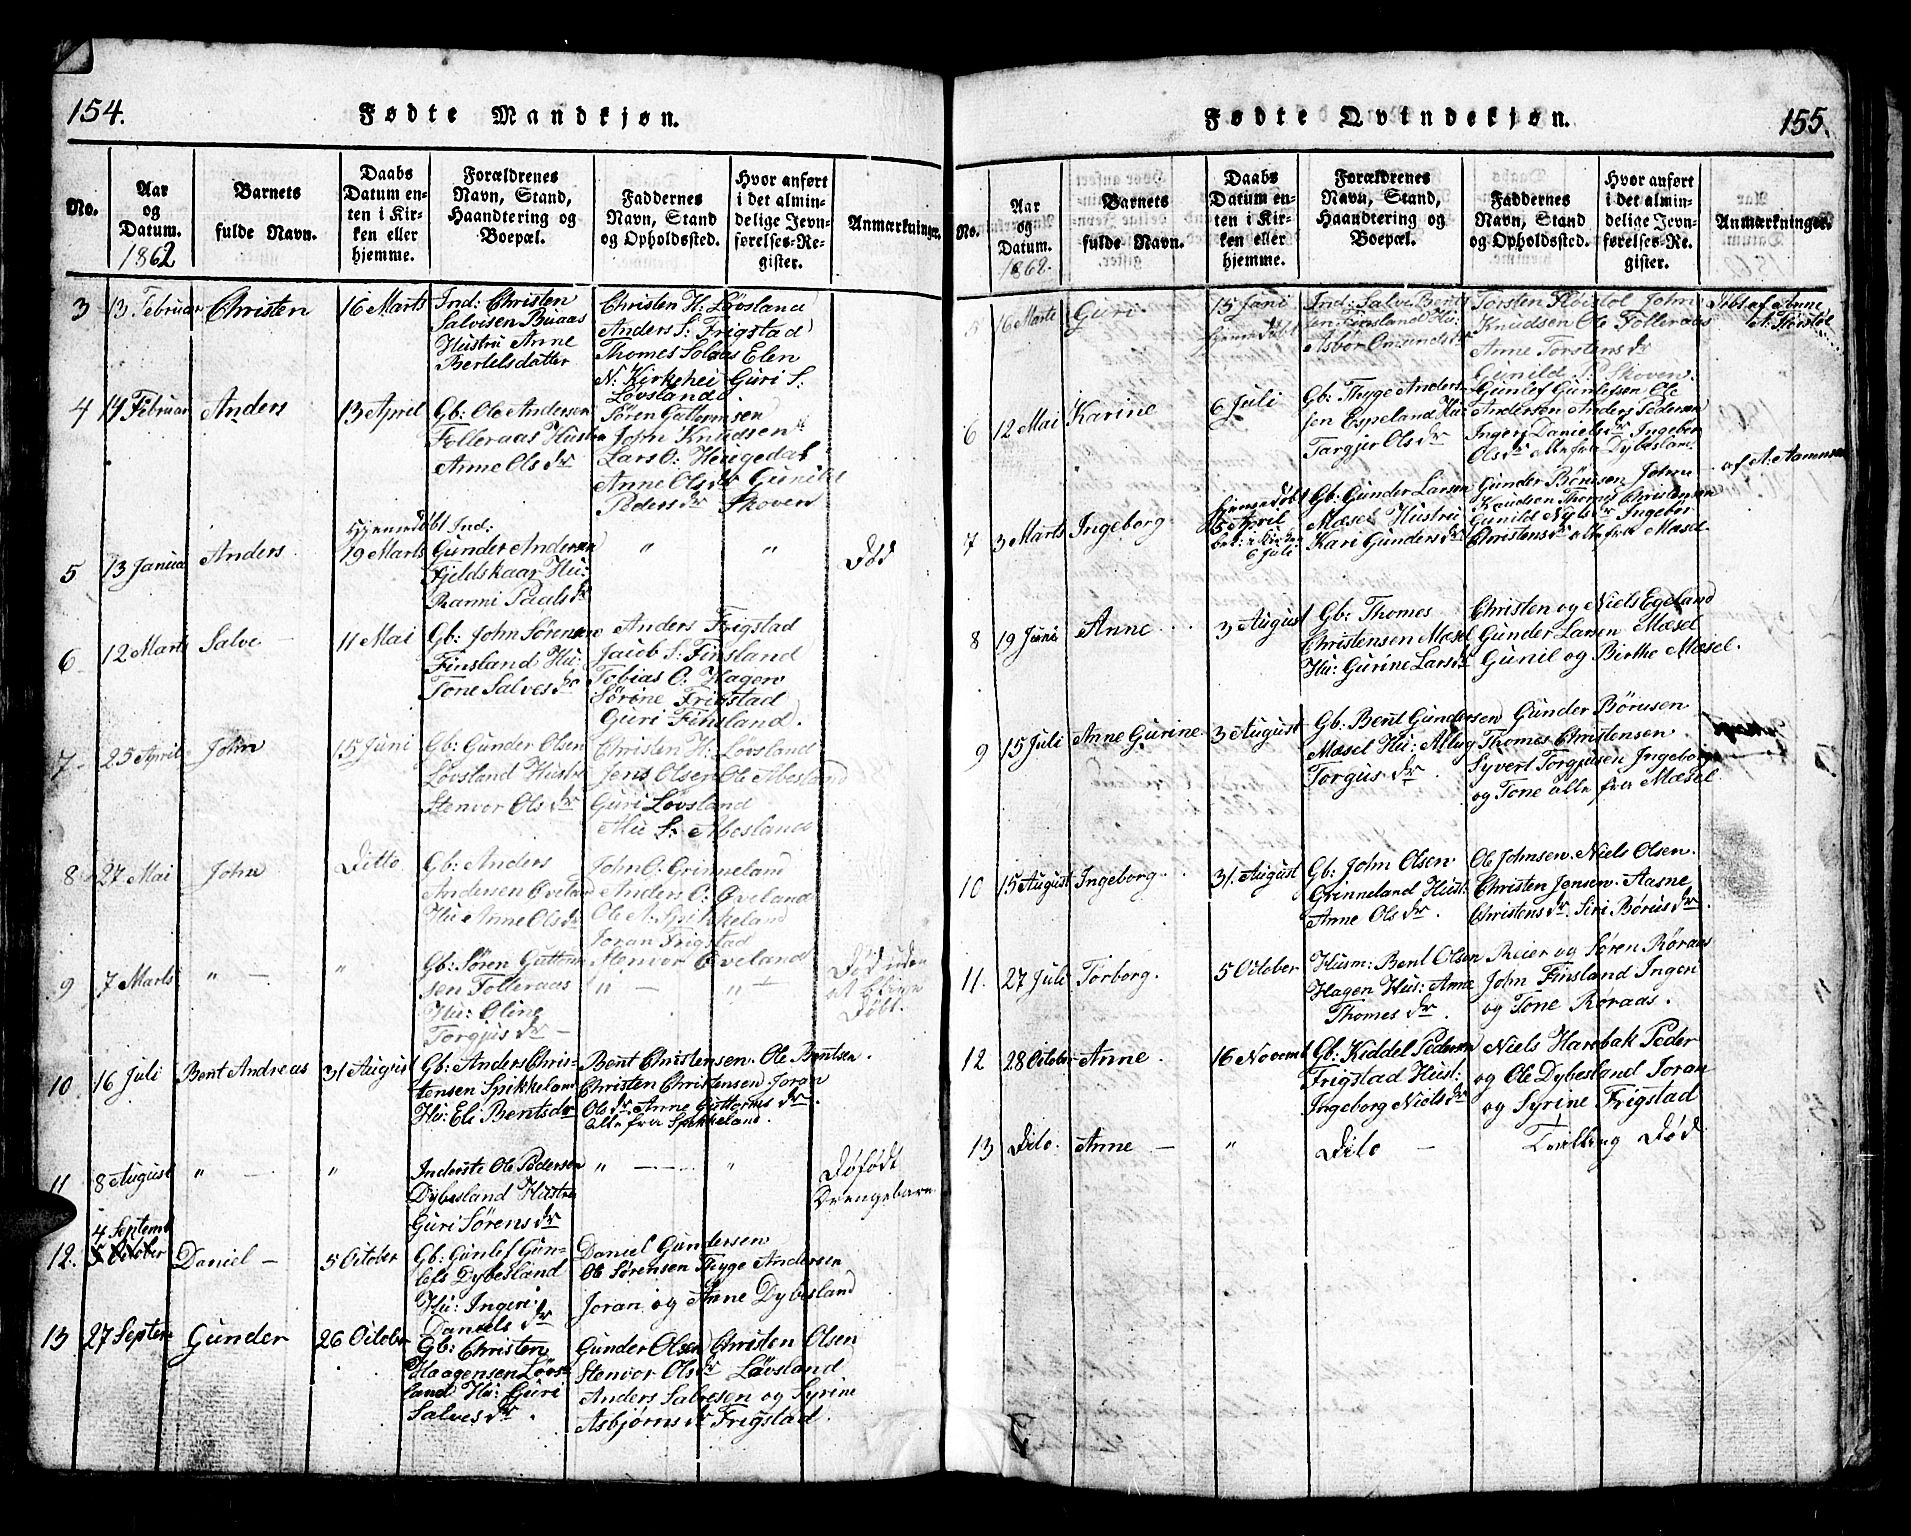 154.
Fødte Mandkjøn.
No.
Aar og Datum.
1862
Barnets fulde Navn.
Daabs Datum enten i Kirken eller hjemme.
Forældrenes Navn, Stand, Haandtering og Boepæl.
Faddernes Navn, Stand og Opholdssted.
Hvor anført i det almindelige Jevnførelses-Register.
Anmærkninger.
3
13 Februar
Christen
16 Marts
Ind: Christen
Salvisen Buaas
Hustru Anne
Bertelsdatter
Christen H: Løvsland
Anders S: Frigstad
Thomes Solaas Elen
N: Kirkehei Guri S:
Løvsland
4
14 Februar
Anders
13 April
Gb: Ole Andersen
Folleraas Hustru
Anne Olsdr
Sören Guttormsen
John Knudsen
Lars O: Heugedal
Anne Olsdr Gunild
Pedersdr Skoven
5
13 Januar
Anders
Hjemmedøbt
19 Marts
Ind:
Gunder Andersen
Fjeldskaar Hu:
Ranni Paalsdr
"
"
Død
6
12 Marts
Salve
11 Mai
Gb: John Sørensen
Finsland Hu:
Tone Salvesdr
Anders Frigstad
Jacob S: Finsland
Tobias O: Hagen
Sørine Frigstad
Guri Finsland.
7
25 April
John
15 Juni
Gb: Gunder Olsen
Løvsland Hustr
Stenvor Olsdr
Christen H: Løvsland
Jens Olsen Ole Abesland
Guri Løvsland
S: Abesland
8
27 Mai
John
Ditto
Gb: Anders
Andersen Eveland
Hu Anne Olsdr
John O: Grinneland
Anders O: Eveland
Ole A: Spikkeland
Joran Frigstad
Stenvor Eveland
9
7 Marts
" —
"
Gb: Søren Guttorm
sen Folleraas
Hu: Oline
Torgjusdr —
" —
" —
Død uden
at blive
Døbt.
10
16 Juli
Bent Andreas
31 August
Gb: Anders Chris-
tensen Spikkeland
Hu: Eli Bentsdr
Bent Christensen. Ole Bentsen.
Christen Christensen Joran
Olsdr Anne Guttormsdr.
alle fra Spikkeland.
11
8 August
" —
"
Inderste Ole Pedersen
Dybesland Hustru
Guri Sørensdr
" —
"
Døfødt
Drengebarn
12.
4 Septemb
5 October
Daniel —
5 October
Gb: Gunlef Gun-
lefs Dybesland
Hu: Ingeri
Danielsdr
Daniel Gundersen
Ole Sørensen Thyge Andersen
Joran og Anne Dybesland
13
27 Septem
Gunder
26 October
Gb: Christen
Haagensen Løvs-
land Hu: Guri
Salvesdr.
Gunder Olsen Christen Olsen
Stenvor Olsdr Løvsland
Anders Salvesen og Syrine
Asbjørnsdr Frigstad.
155.
Fødte Qvindekjøn.
No.
Aar og Datum.
1862.
Barnets fulde Navn.
Daabs Datum enten i Kirken eller hjemme.
Forældrenes Navn, Stand, Haandtering og Boepæl.
Faddernes Navn, Stand og Opholdssted.
Hvor anført i det almindelige Jevnførelses-Register.
Anmærkninger.
5
16 Marts
Guri
15 Juni
Hjemmedøbt
Ind: Salve Bent
sen Finsland Hu:
Asbor Omunds dr
Torsten Høistøl John
Knudsen Ole Folleraas
Anne Torstensdr
Gunild P: Skoven.
Døbt af Anne
A. Høistøl
6
12 Mai
Karine
6 Juli
Gb: Thyge Anders
sen Espeland Hu:
Targjer Olsdr
Gunlef Gunlefsen Ole
Andersen Anders Pedersen
Ingeri Danielsdr Ingebor
Olsdr alle fra Dybesland
7
3 Marts
Ingeborg
Hjemmedøbt
5 April
bek: i Kirken
6 Juli
Gb: Gunder Larsen
Mæsel Hustru
Kari Gundersdr
Gunder Børusen John
Knudsen Thomes Christensen
Gunild Nilsdr Ingebor
Christensdr alle fra Mæsel
af A: Aamnsen
8
19 Juni
Anne
3 August
Gb: Thomes
Christensen Mæsel
Hu: Gurine Larsdr
Christen og Niels Egeland
Gunder Larsen Mæsel
Gunil og Birthe Mæsel.
9
15 Juli
Anne Gurine
3 August
Gb: Bent Gundersen
Mæsel Hu:
Torgusdr.
Gunder Børusen
Thomes Christensen.
Syvert Torgjusen Ingeborg
og Tone alle fra Mæsel
10
15 August
Ingeborg
31. August
Gb: John Olsen
Grinneland Hust:
Anne Olsdr.
Ole Johnsen. Niels Olsen.
Christen Jensen. Aasne
Christensdr. Siri Børusdr.
11.
27 Juli
Torborg.
5 October
Husm: Bent Olsen
Hagen Hus: Anne
Thomesdr.
Reier og Søren Røraas
John Finsland Inger
og Tone Røraas.
12
28 October
Anne.
16 Novemb
Gb: Kiddel Pedersen
Frigstad Hust:
Ingeborg Nielsdr
Niels Harebak Peder
og Ole Dybesland Joran
og Syrine Frigstad
13
Dito.
Anne —
"
Dito —
Tvilling Død